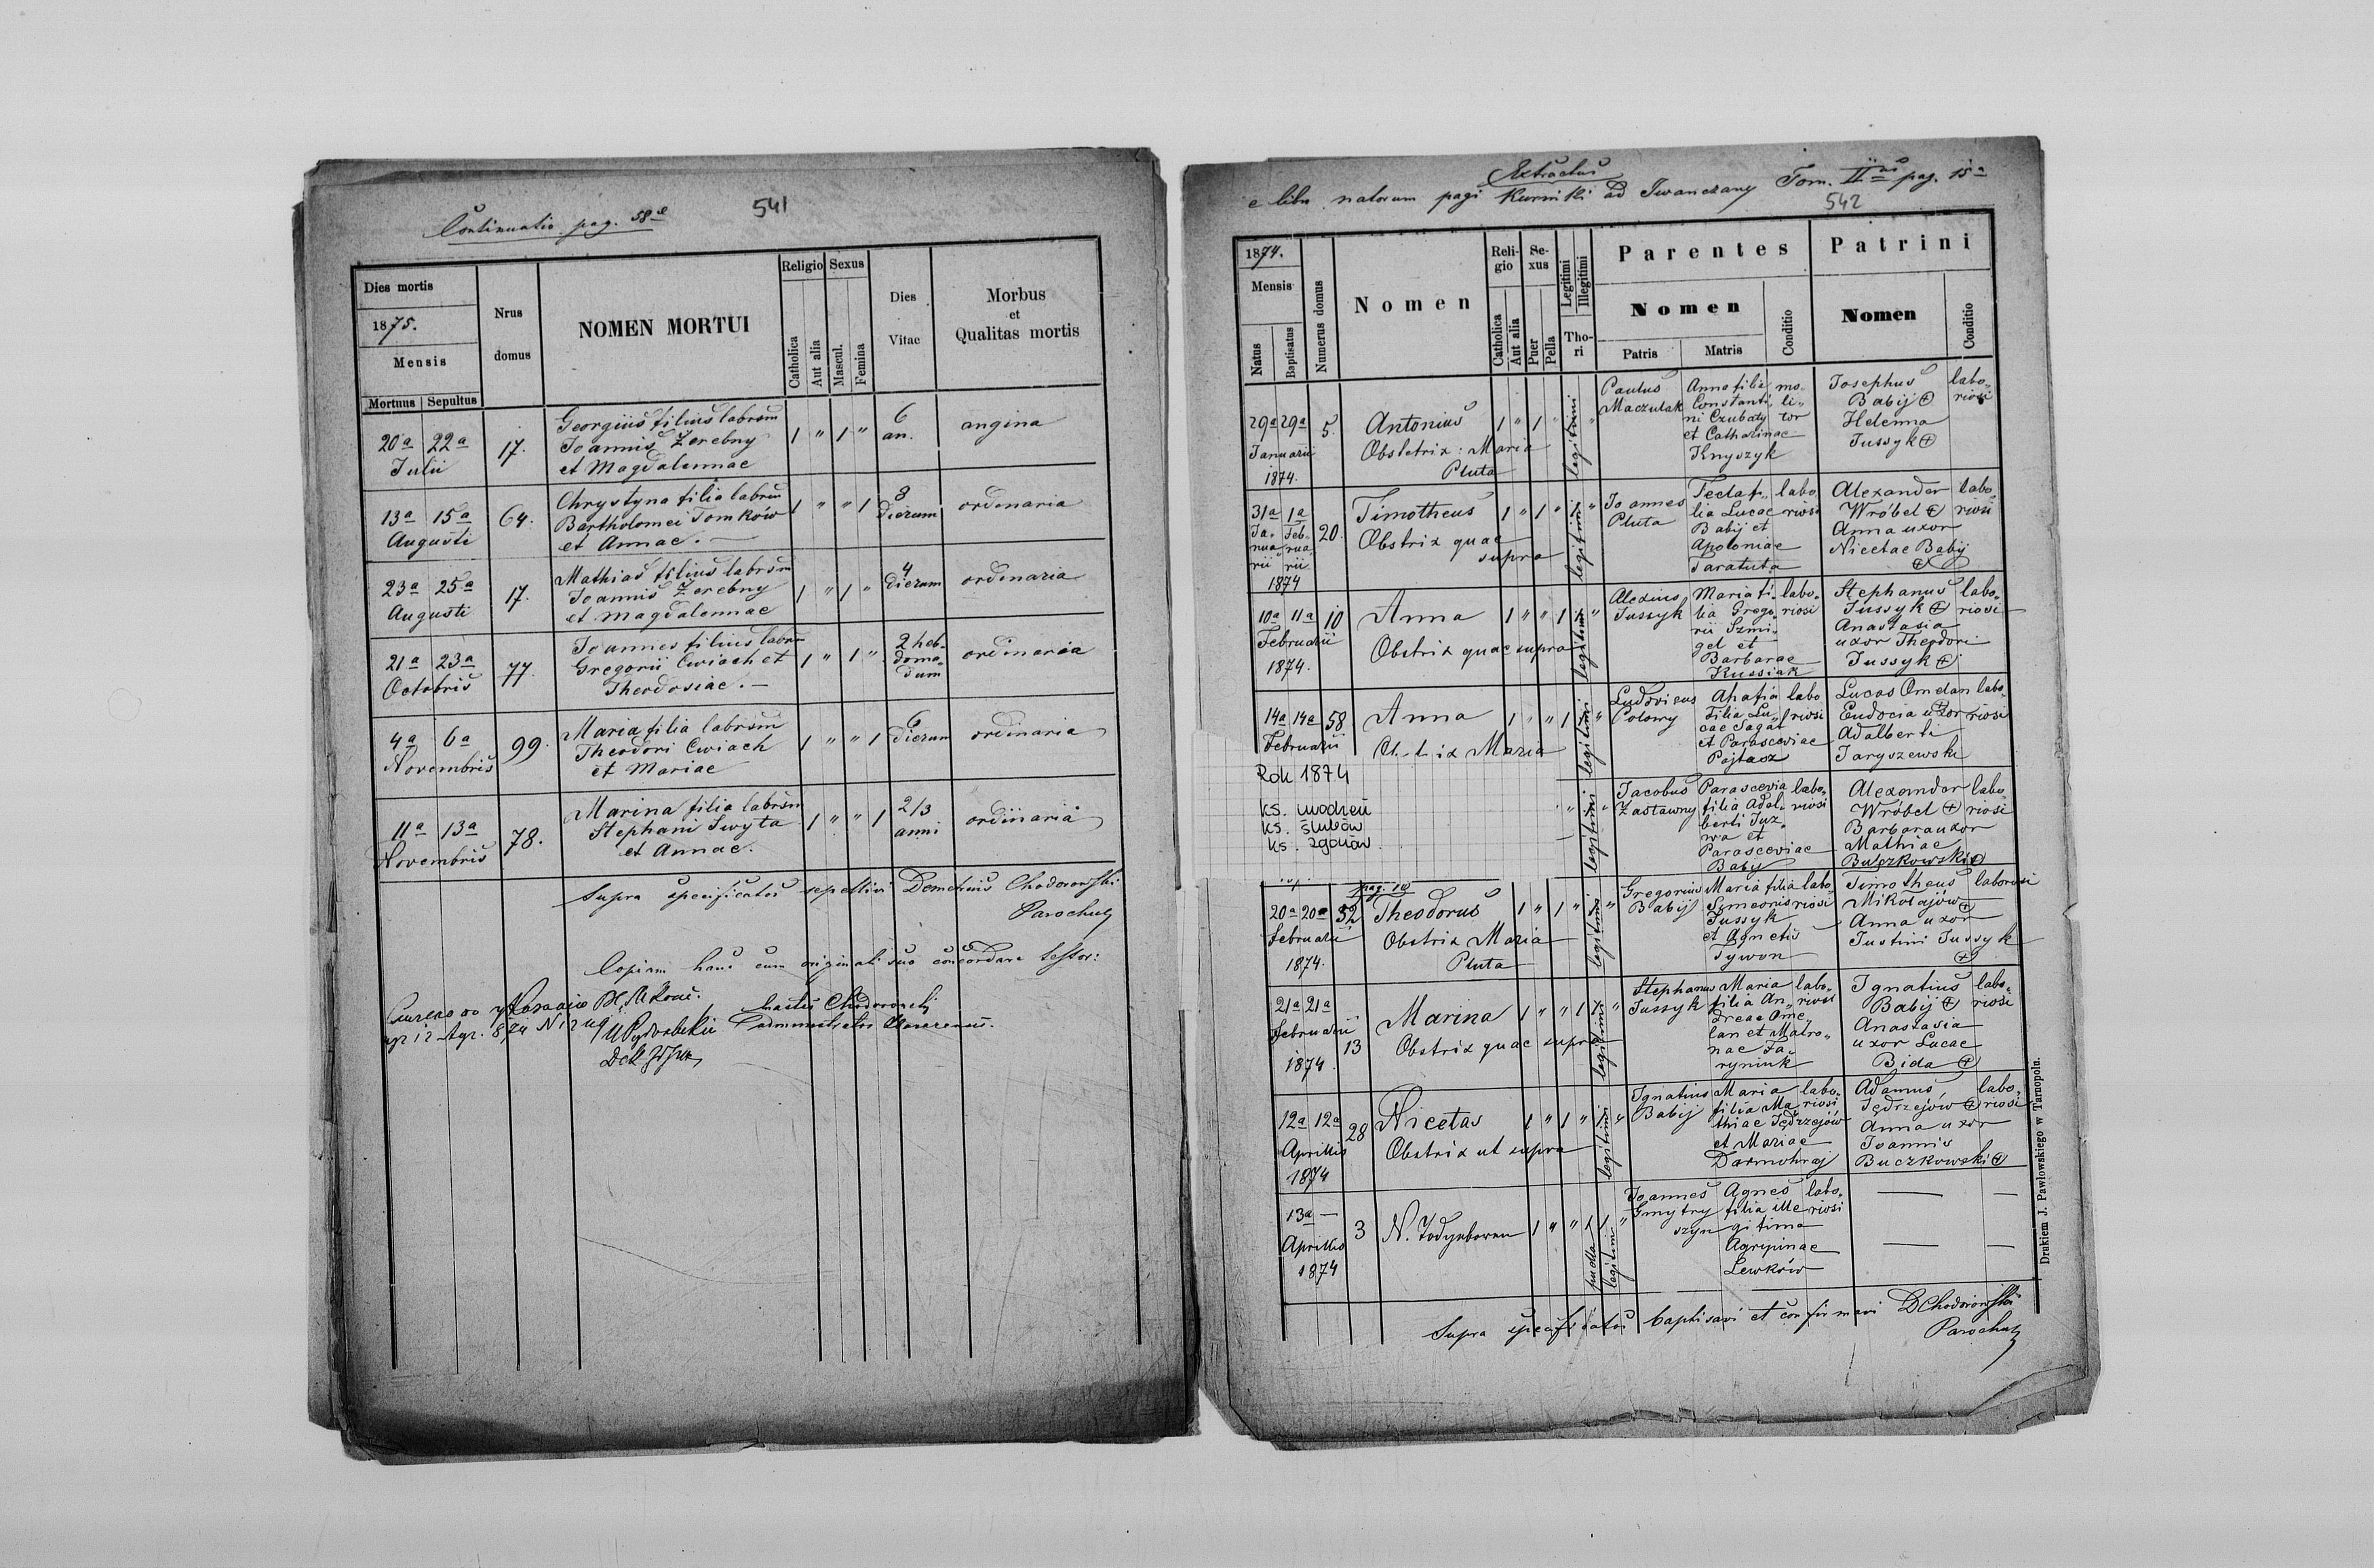 Continuatio pag. 58
541
Dies mortis
1875.
Mensis
Mortuus Sepultus
Nrus domus
NOMEN MORTUI
Religio Sexus
Catholica
Aut alia
Mascul.
Femina
Dies Vitae
Morbus
et
Qualitas mortis
20a 22a Julii 17.
Georgius filius labrsm
Joannis Zerebny
et Magdalennae
1 " 1 " 6 an. angina
13a 15a Augusti 64.
Chrystyna filia labrsm
Bartholomei Tomków
et Annae.
1 " " 1 8 Dierum ordinaria
23a 25a Augusti 17.
Mathias filius labrsm
Joannis Zerebny
et Magdalennae
1 " 1 " 4 dierum ordinaria
21a 23a Octobris 77.
Joannes filius labrsm
Gregorii Cwiach et
Theodosiae.
1 " 1 " 2 hebdomadum ordinaria
4a 6a Novembris 99.
Maria filia labrsm
Theodori Cwiach
et Mariae
1 " " 1 6 dierum ordinaria
11a 13a Novembris 78.
Marina filia labrsm
Stephani Swyta
et Annae.
1 " " 1 2/3 anni ordinaria
Supra specificatos sepelivi Demetrius Chodorowski
Parochus
Copiam hanc cum originali suo concordare testor:
Chodorowski
administrator
Extractus
e libro natorum pagi Kurniki ad Iwanczany Tom. II pag. 15a
542
1874.
Mensis
Natus
Baptisatus
Numerus domus
Nomen
Religio
Catholica
Aut alia
Sexus
Puer
Pella
Legitimi
Illegitimi
Thori
Parentes
Nomen
Patris
Matris
Conditio
Patrini
Nomen
Conditio
29a 29a Januarii 1874. 5.
Antonius
Obstetrix: Maria
Pluta
1 " 1 " legitimi "
Paulus
Maczulak
Anna filia
Constanti
ni Czubaty
et Catharinae
Knyszyk
mo
li
tor
Josephus
Babij
Helenna
Jussyk
labo
riosi
31a Januarii 1a Februarii 1874 20.
Timotheus
Obstrix quae
supra
1 " 1 " legitimi "
Joannes
Pluta
Tecla fi
lia Lucae
Babij et
Apoloniae
Taratuta
labo
riosi
Alexander
Wróbel
Anna uxor
Nicetae Babij
labo
riosi
10a 11a Februarii 1874. 10
Anna
Obstrix quae supra
1 " " 1 legitimi "
Alexius
Jussyk
Maria fi
lia Grego
rii Szmi
gel et
Barbarae
Kussiak
labo
riosi
Stephanus
Jussyk
Anastasia
uxor Theodori
Jussyk
labo
riosi
14a 14a Februarii 58
Anna
Maria
1 " " 1 legitimi "
Ludovicus
Polowy
Ahafia
filia Lu
cae Sagat
et Parasceviae
Pajtasz
labo
riosi
Lucas Omelan
Eudocia uxor
Adalberti
Jaryszewski
labo
riosi
Rok 1874
ks. urodzeń
ks. ślubów
ks. zgonów
legitimi "
Jacobus
Zastawny
Parascevia
filia Adal
berti Juz
wa et
Parasceviae
Babij
labo
riosi
Alexander
Wróbel
Barbara uxor
Mathiae
Buczkowski
labo
riosi
20a 20a Februarii 1874. 52
Theodorus
Obstrix Maria
Pluta
1 " 1 " legitimi "
Gregorius
Babij
Maria filia
Simeonis
Jussyk
et Agnetis
Tywon
labo
riosi
Timotheus
Mikołajów
Anna uxor
Justini Jussyk
laboriosi
21a 21a Februarii 1874. 13
Marina
Obstrix quae supra
1 " " 1 legitimi "
Stephanus
Jussyk
Maria
filia An
dreae Ome
lan et Matro
nae Fa
ryniuk
labo
riosi
Ignatius
Babij
Anastasia
uxor Lucae
Bida
labo
riosi
12a 12a Aprillis 1874 28
Nicetas
Obstrix ut supra
1 " 1 " legitimi "
Ignatius
Babij
Maria
filia Ma
thiae Jędrzejów
et Mariae
Darmohraj
labo
riosi
Adamus
Jędrzejów
Anna uxor
Joannis
Buczkowski
labo
riosi
13a — Aprillis 1874 3
N.
1 " " 1 puella legitimi "
Joannes
Gmytry
szyn
Agnes
filia ille
gitima
Agripinae
Lewków
labo
riosi
Supra specificatos baptisavi et confirmavi DChodorowski
Parochus
Drukiem J. Pawłowskiego w Tarnopolu.